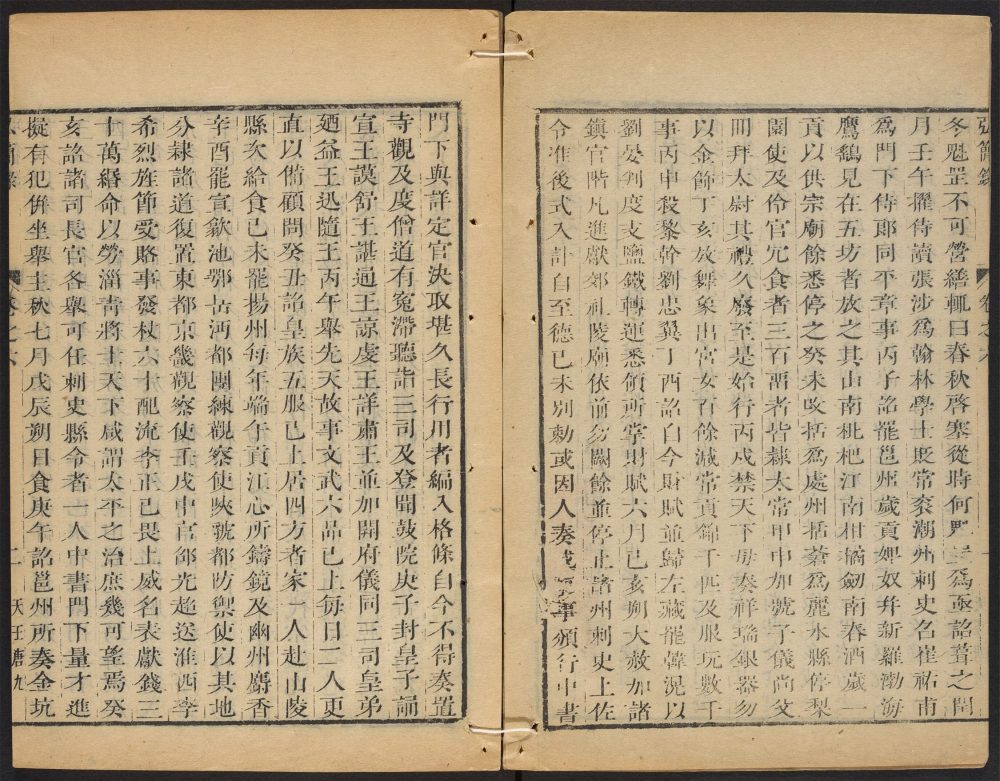 弘簡錄 卷之六 一
冬魁罡不可營繕輒曰春秋啓塞從時何罡之爲亟詔葺之閏
月壬午擢侍讀張涉爲翰林學士貶常袞潮州刺史名崔祐甫
爲門下侍郎同平章事丙子詔罷邕州歲貢奴奴幷新羅渤海
鷹鷂見在五坊者放之其山南枇杷江南柑橘劒南春酒歲一
貢以供宗廟餘悉停之癸未改括爲處州括蒼爲麗水縣停梨
園使及伶官冗食者三百留者皆隸太常甲申加號子儀尚父
冊拜太尉其禮久廢至是始行丙戌禁天下毋奏祥瑞銀器勿
以金飾丁亥放舞象出宮女百餘減常貢錦千匹及服玩數千
事丙申殺黎幹劉忠翼丁酉詔自今財賦並歸左藏罷韓滉以
劉晏判度支鹽鐵轉運悉領所掌財賦六月己亥朔大赦加諸
鎮官階凡進獻郊祉陵廟依前勿闕餘並停止諸州刺史上佐
令准後式入計自至德已來別勅或因人奏 事頒行中書
門下與詳定官決取堪久長行用者編入格條自今不得奏置
寺觀及度僧道有冤滯聽詣三司及登聞鼓院庚子封皇子誦
宣王謨舒王諶通王諒虔王詳肅王並加開府儀同三司皇弟
廼益王迅隨王丙午舉先天故事文武六品已上每日二人更
直以備顧問癸丑詔皇族五服已上居四方者家一人赴山陵
縣次給食己未罷揚州每年端午貢江心所鑄鏡及幽州麝香
辛酉罷宣歙池鄂岳沔都團練觀察使陝虢都防禦使以其地
分隸諸道復置東都京畿觀察使壬戌中官邵光超送淮西李
希烈旌節受賂事發杖六十配流李正己畏上威名表獻錢三
十萬緡命以勞淄青將士天下咸謂太平之治庶幾可望焉癸
亥詔諸司長官各舉可任刺史縣令者一人中書門下量才進
擬有犯併坐舉主秋七月戊辰朔日食庚午詔邕州所奏金坑
弘簡錄 卷之六 二 天王唐九